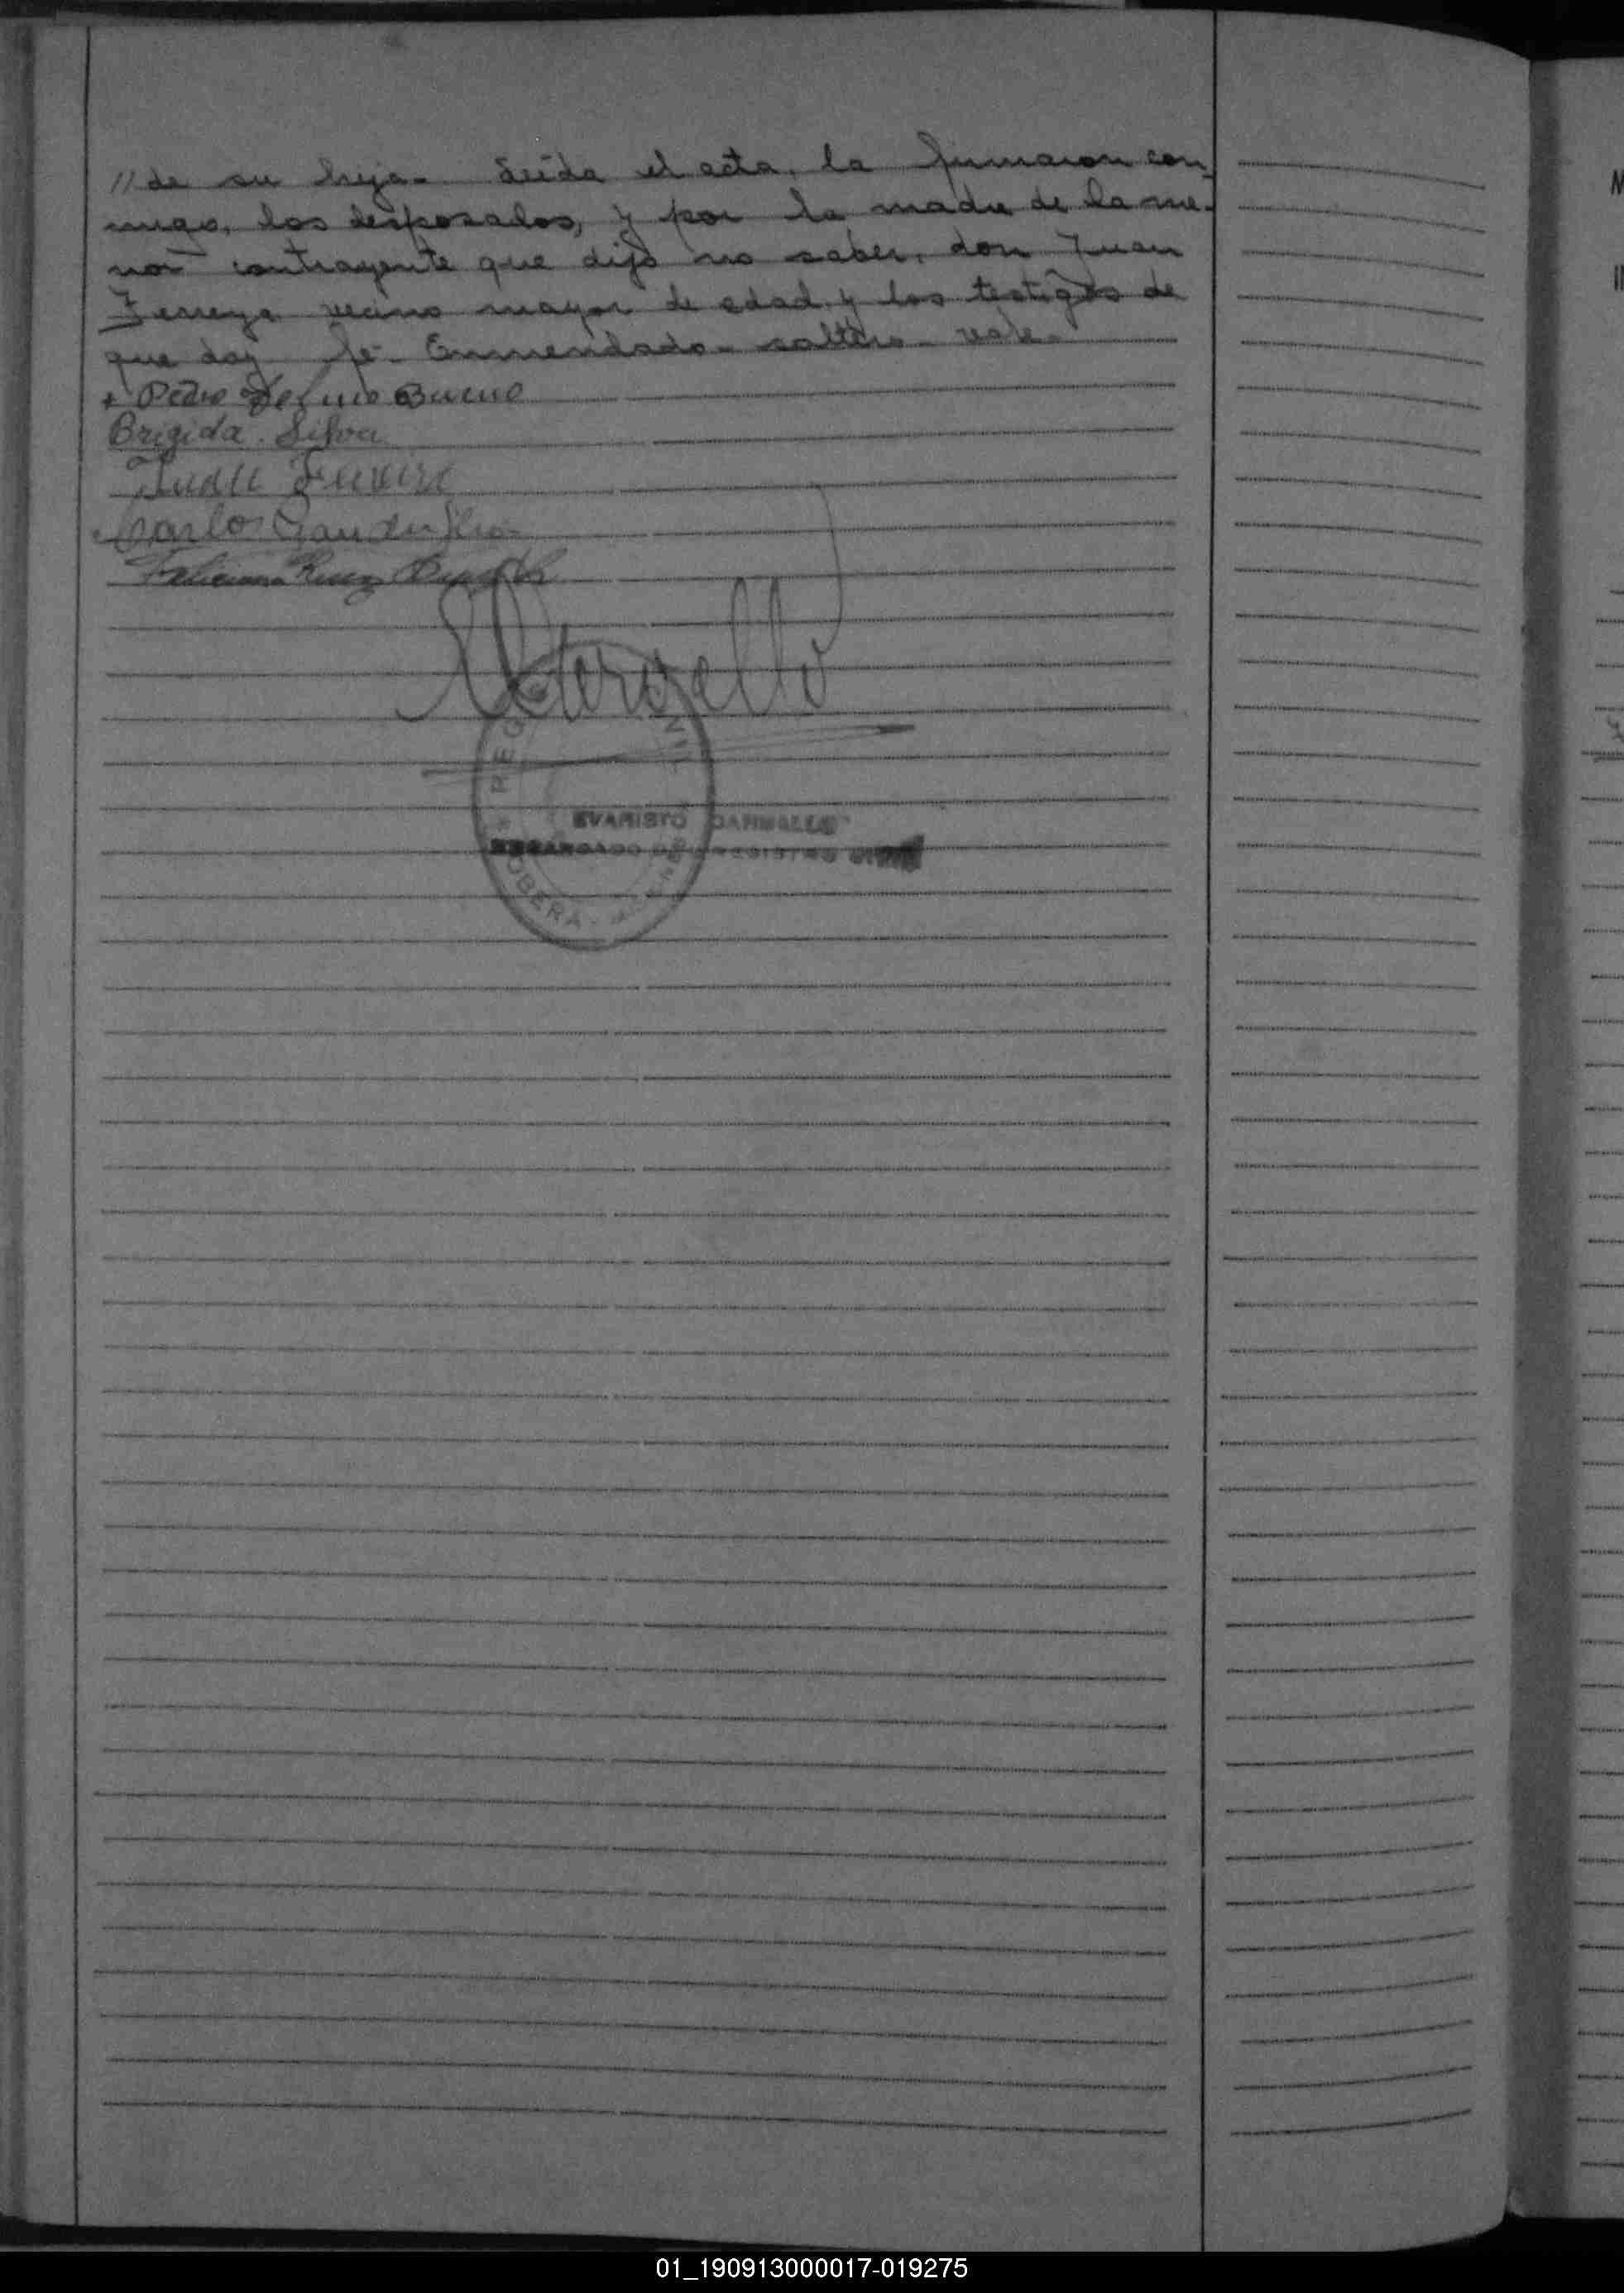 // de su hija.- Leida el acta, la firmaron con-
migo, los desposados, y por la madre de la me-
nor contrayente que dijo no saber, don Juan
Ferreyra vecino mayor de edad y los testigos de
que doy fe.- Enmendado - soltero - vale.-
Pedro Bueno
Brigida Silva
Carlos
Feliciano
REG CIVIL
EVARISTO
ENCARGADO DEL REGISTRO CIVIL
OBERA
01_190913000017-019275